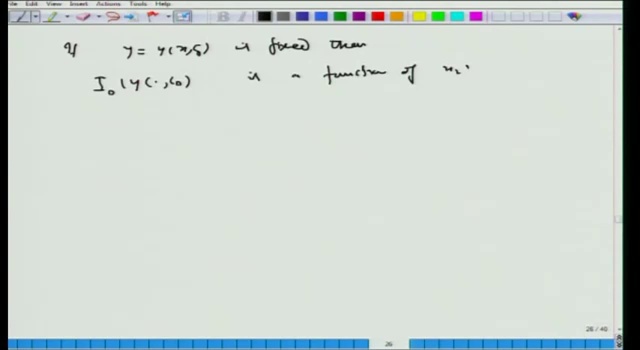 File Edit View Insert Actions Tools Help
If y = y(x, ζ) is fixed then
I₀(y(·, ζ)) is a function of x₂.
26 / 40
26